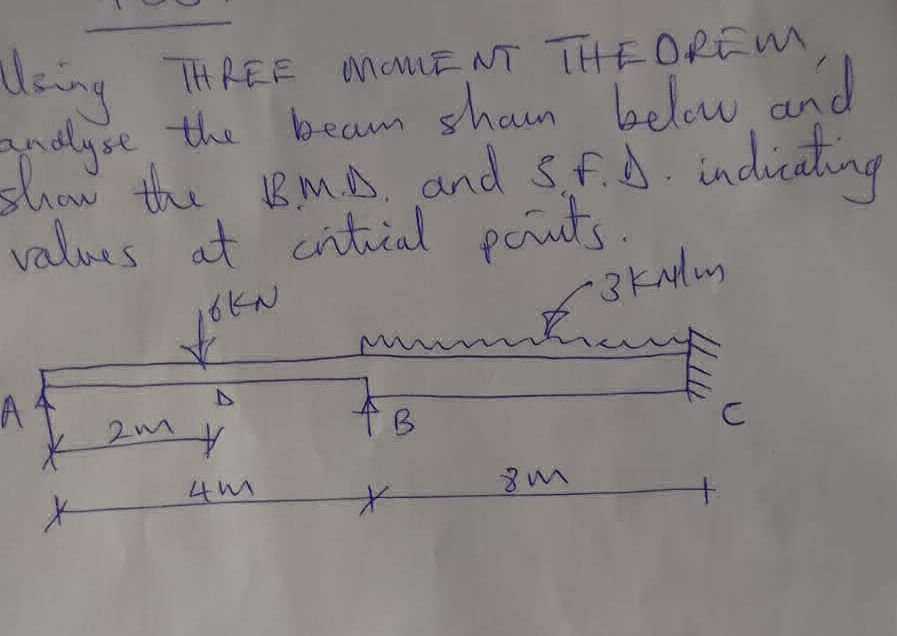 Using THREE MOMENT THEOREM,
analyse the beam shown below and
show the B.M.D. and S.F.D. indicating
values at critical points.
6KN
3KN/m
A
D
B
C
2m
4m
8m